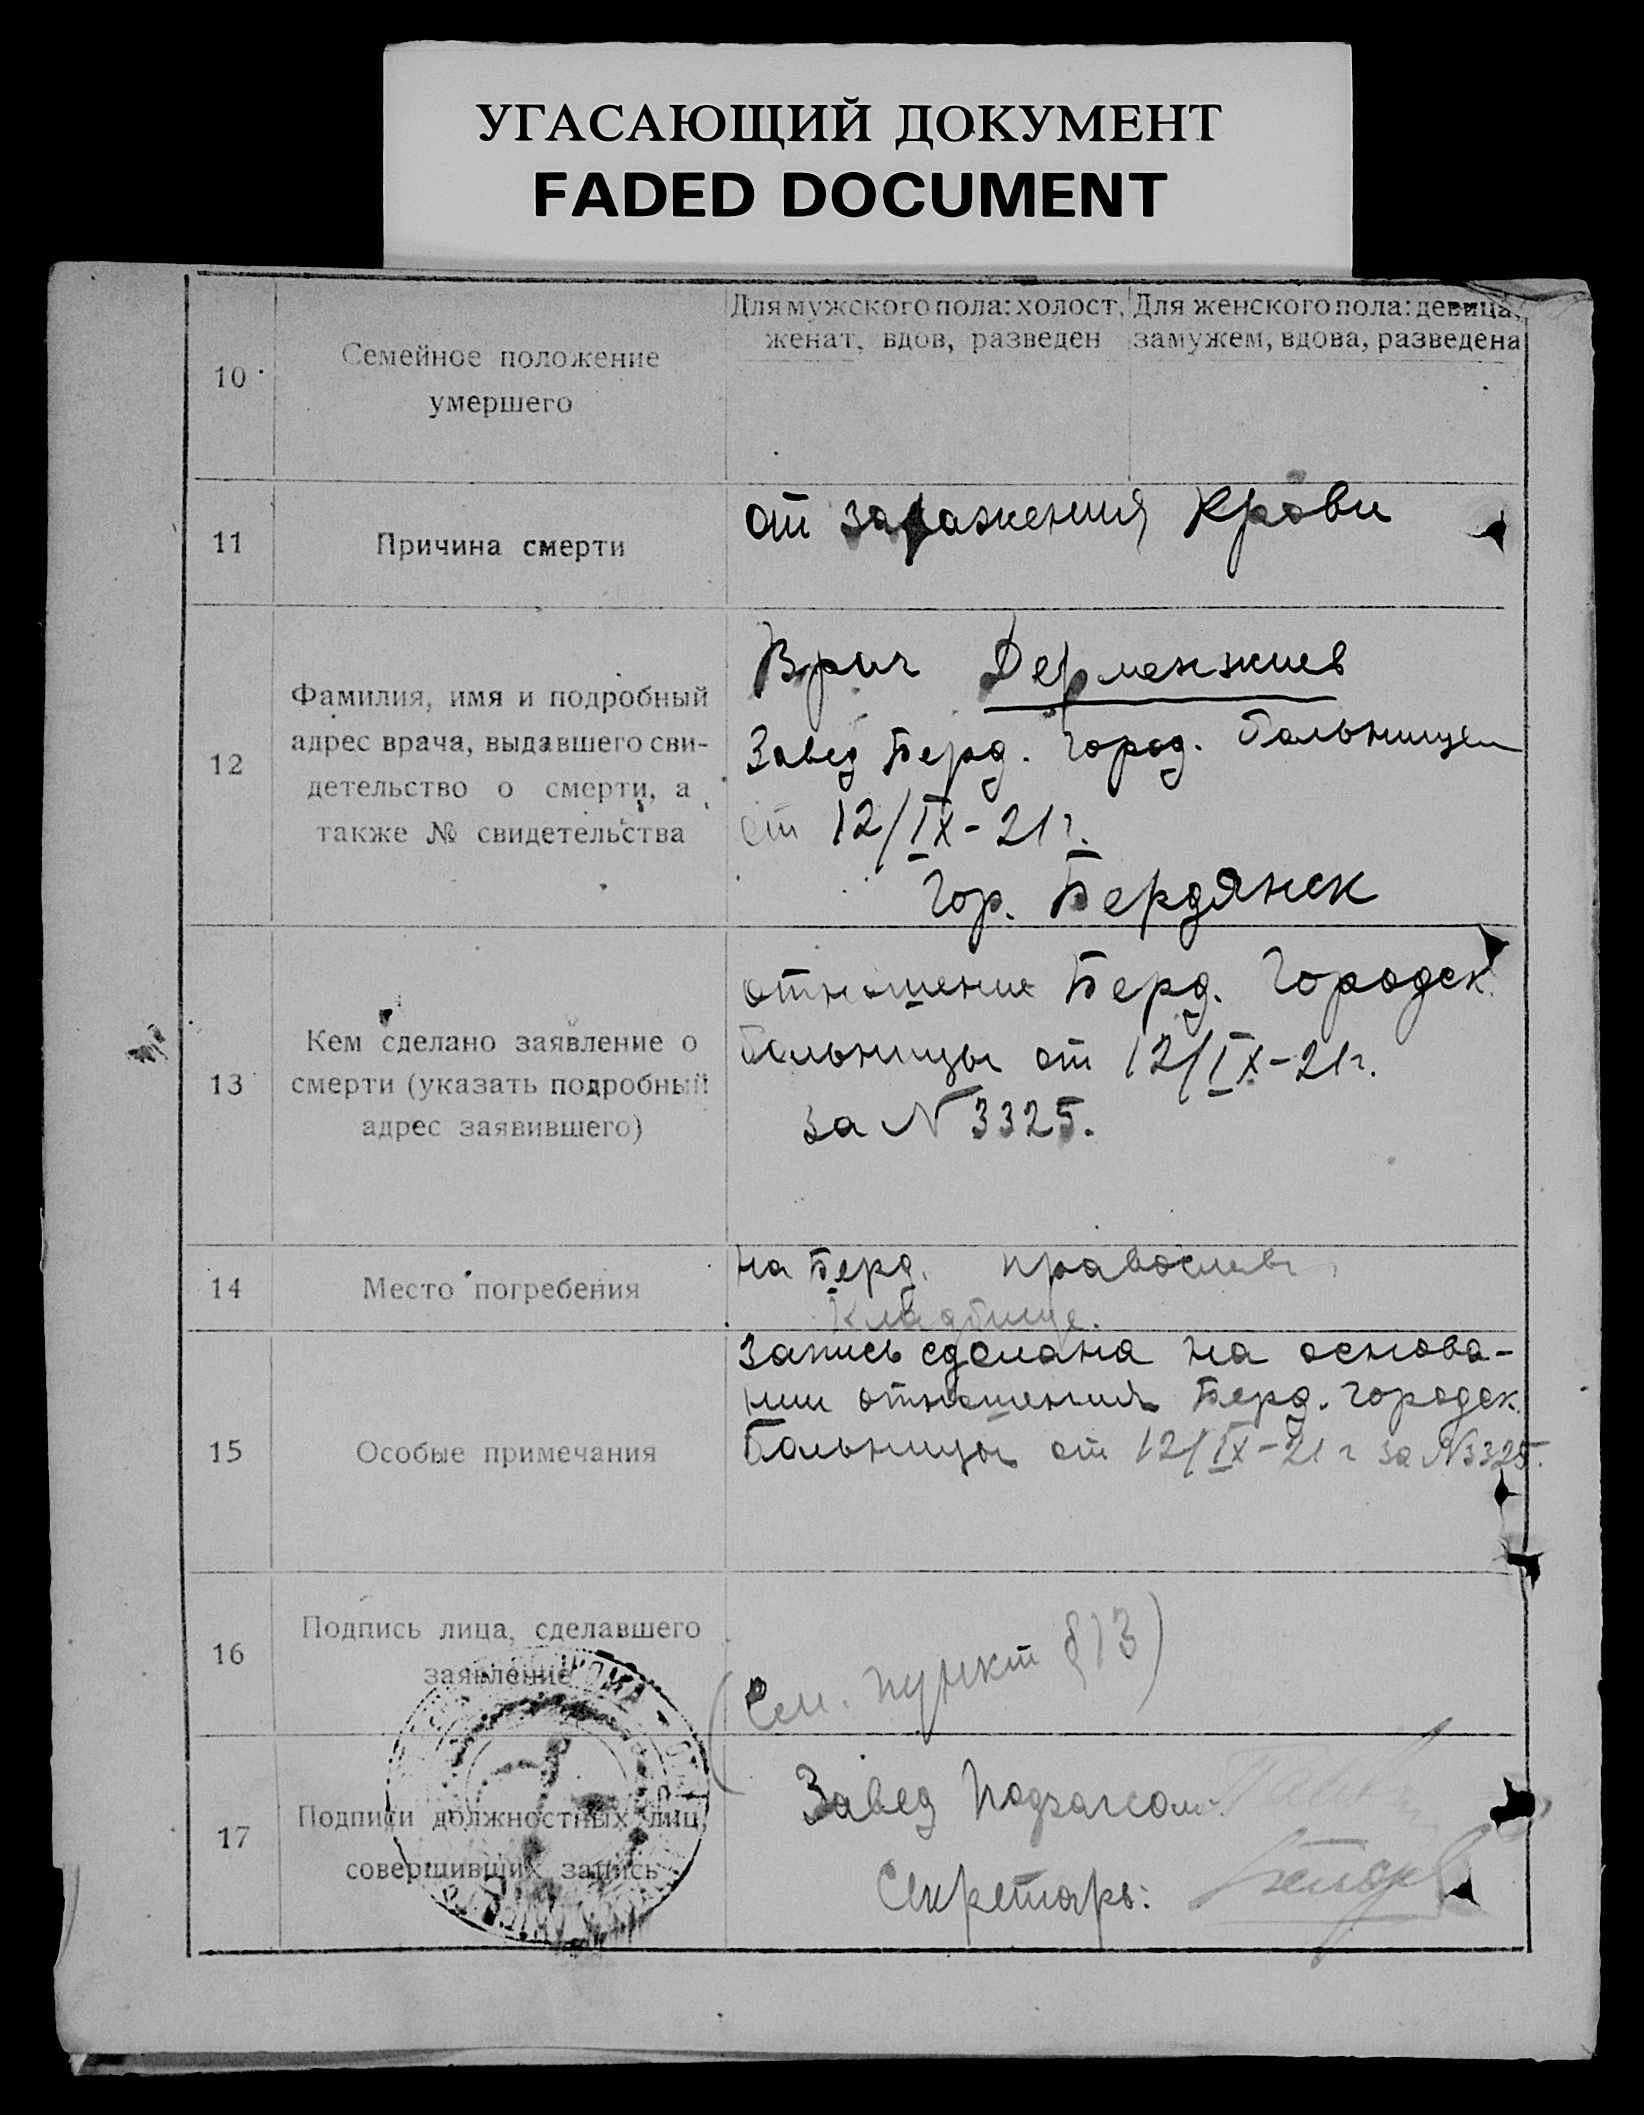 УГАСАЮЩИЙ ДОКУМЕНТ
FADED DOCUMENT
10
Семейное положение
умершего
Для мужского пола: холост,
женат, вдов, разведен
Для женского пола: девица,
замужем, вдова, разведена
11
Причина смерти
от заражения крови
12
Фамилия, имя и подробный
адрес врача, выдавшего сви-
детельство о смерти, а
также № свидетельства
Врач Дерменжиев
Завед Берд. Город. больницей
от 12/IX-21 г.
Гор. Бердянск
13
Кем сделано заявление о
смерти (указать подробный
адрес заявившего)
отношение Берд. Городск.
больницы от 12/IX-21 г.
за N 3325.
14
Место погребения
на Берд. православн.
кладбище.
15
Особые примечания
Запись сделана на основа-
нии отношения Берд. городск.
больницы от 12/IX-21 г за N 3325.
16
Подпись лица, сделавшего
заявление
(См. пункт §13)
17
Подписи должностных лиц,
совершивших запись
Завед Подзагсом
Секретарь: